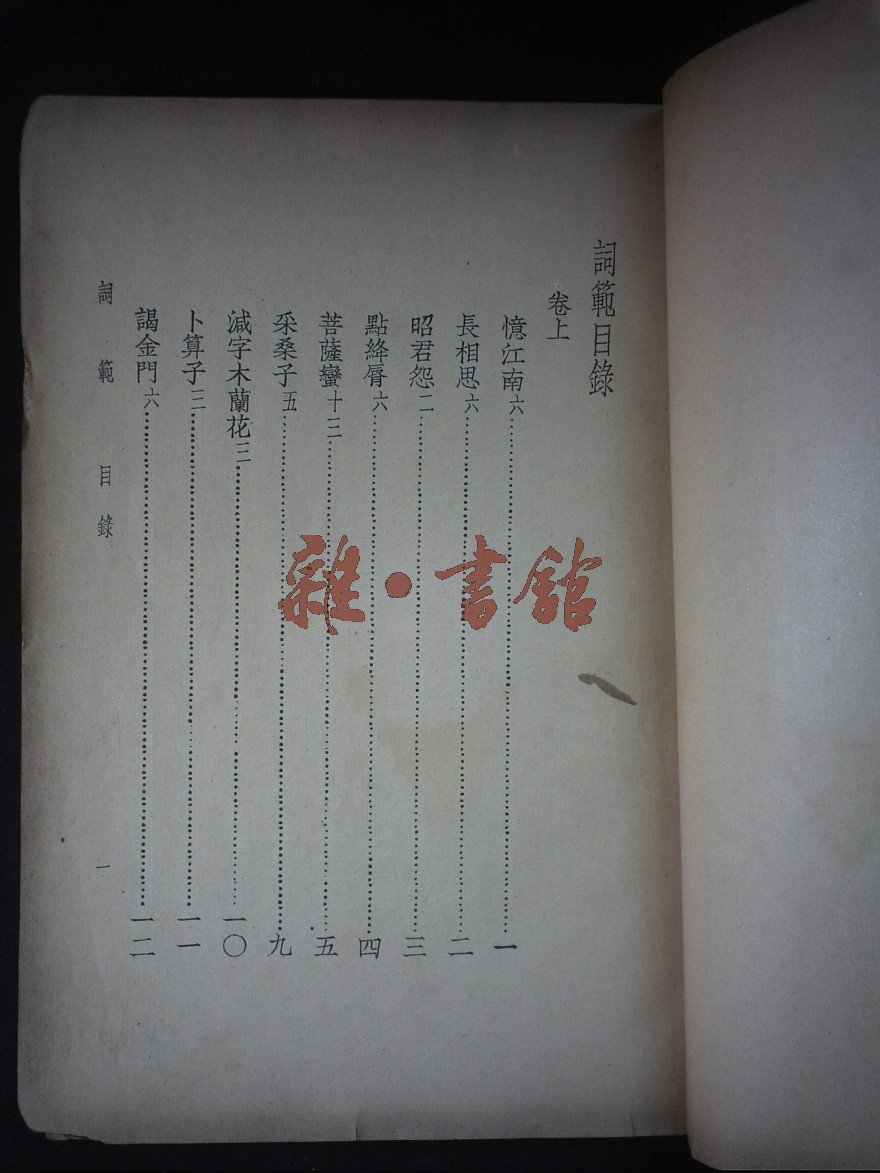 詞範目錄
卷上
憶江南六……一
長相思六……二
昭君怨二……三
點絳脣六……四
菩薩蠻十三……五
采桑子五……九
減字木蘭花三……一〇
卜算子三……一一
謁金門六……一二
詞範 目錄 一
雜·書館